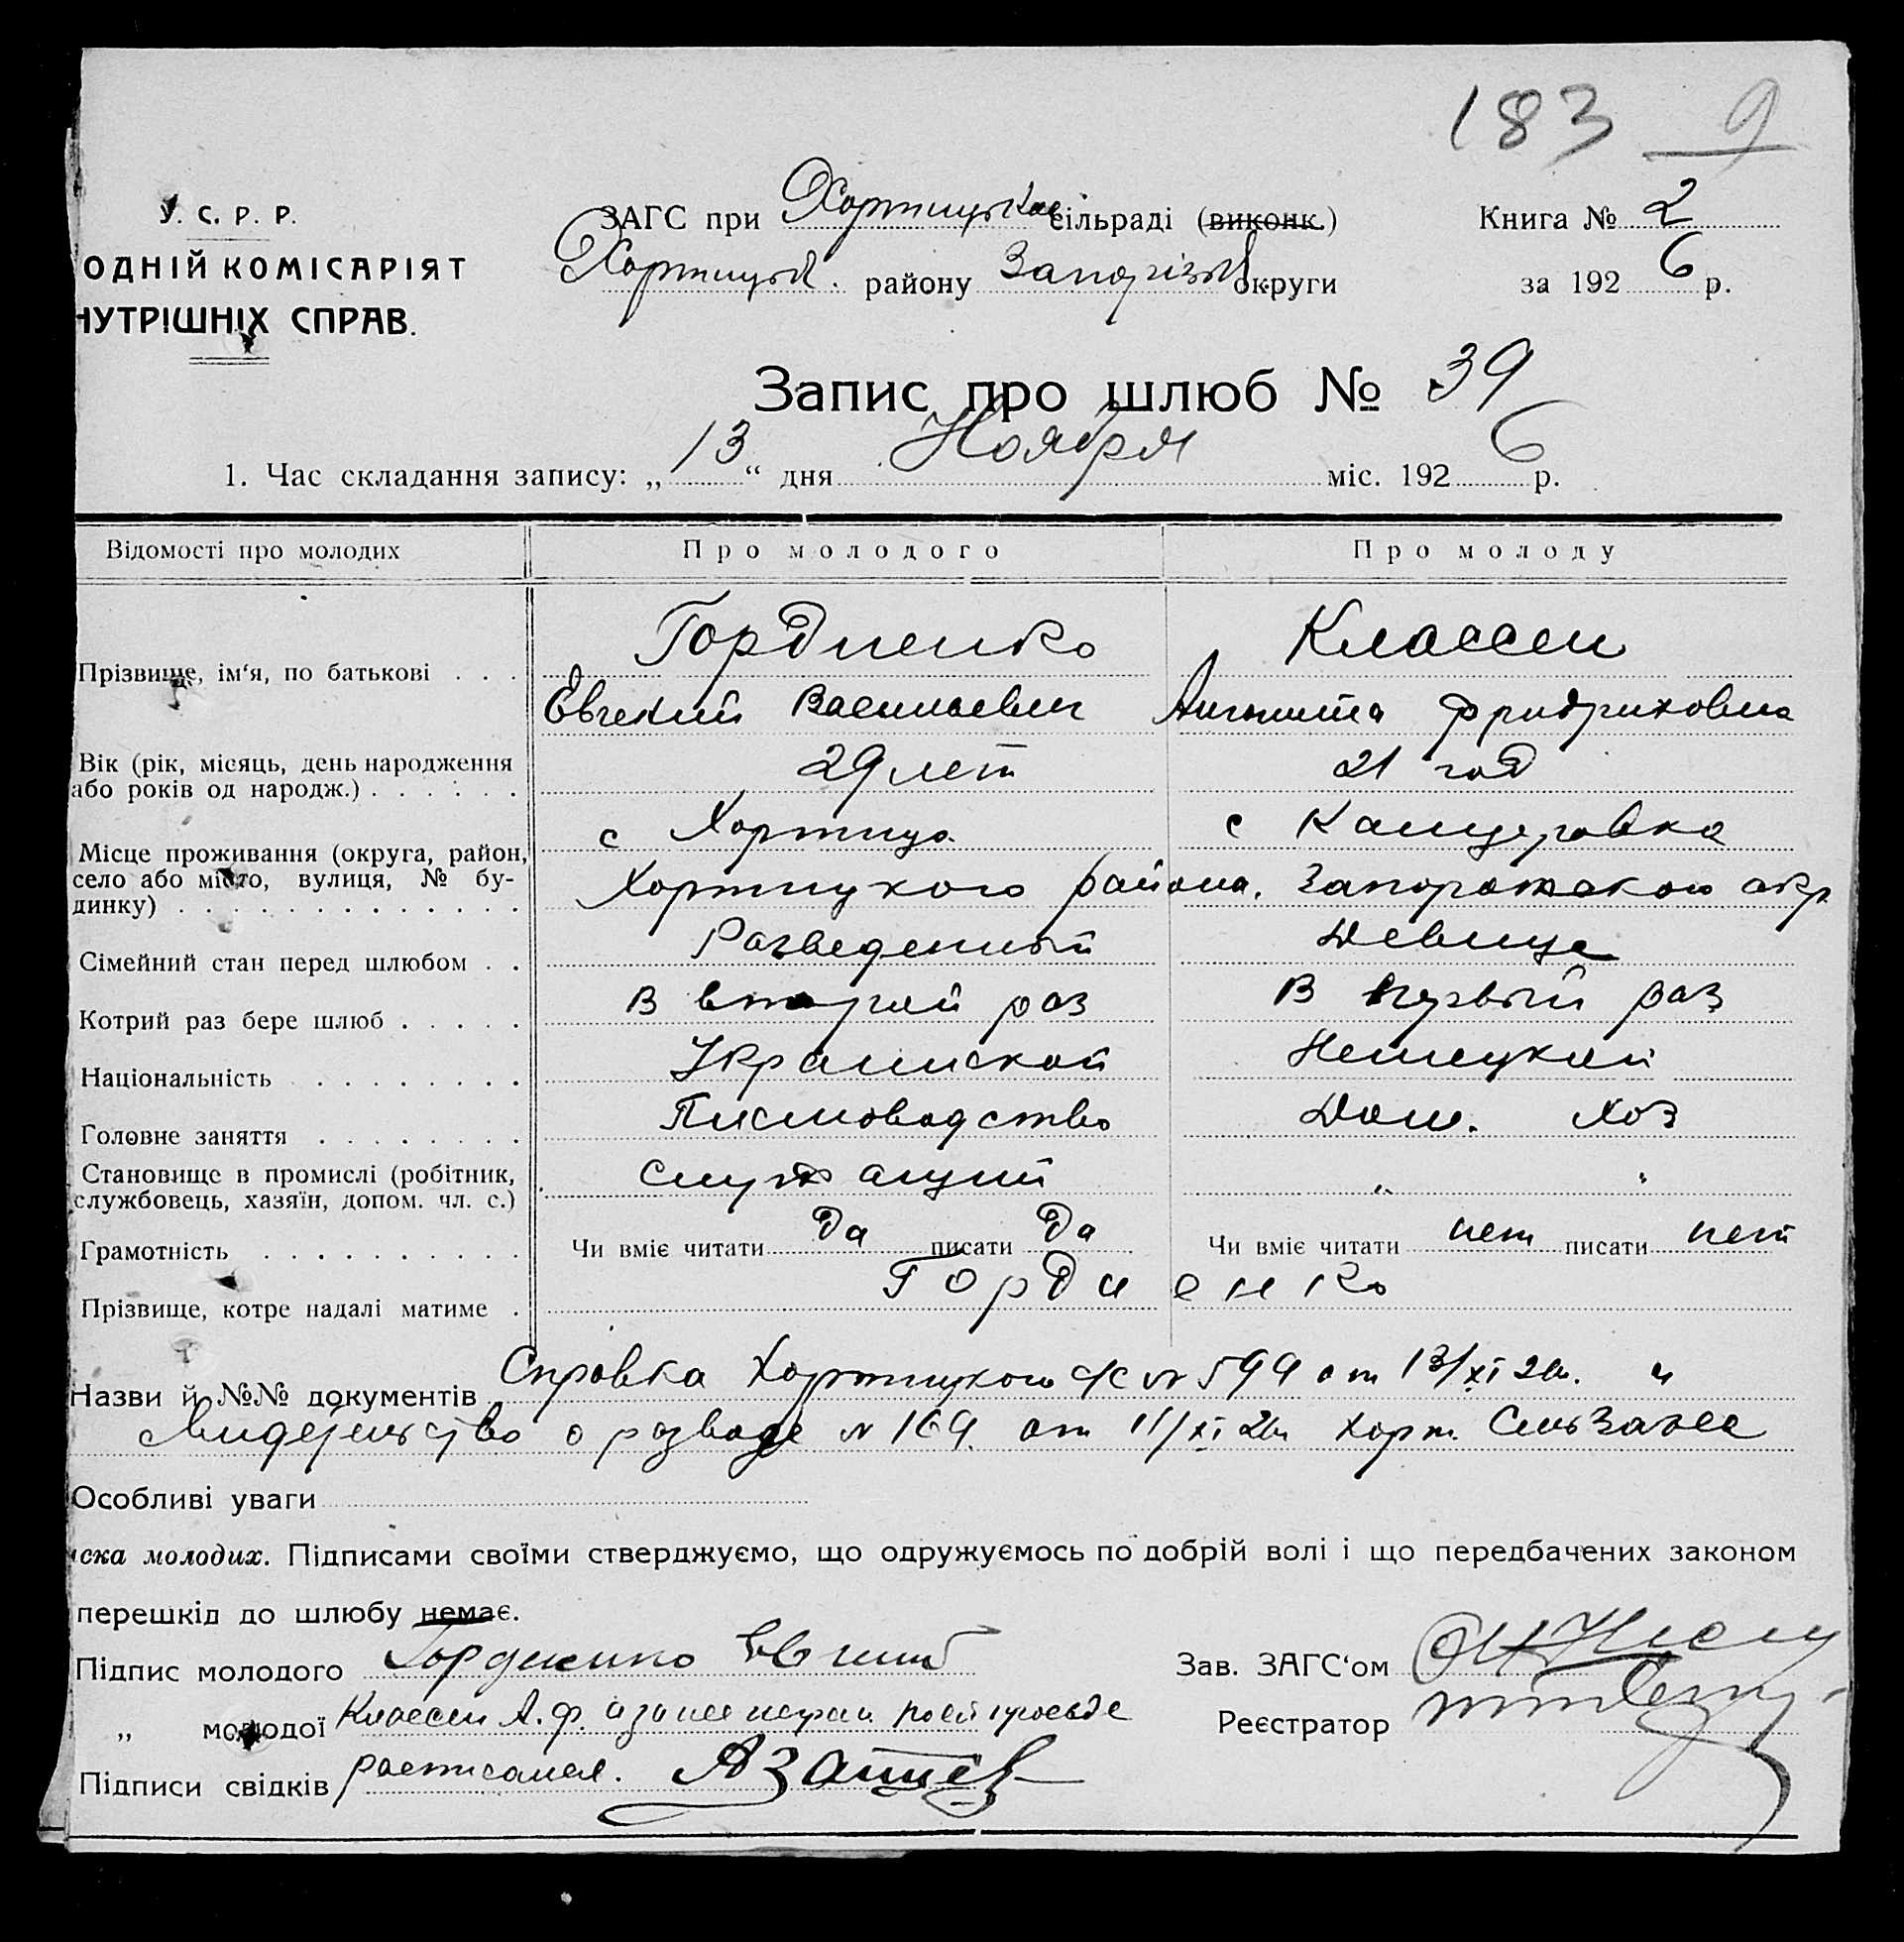 183 9
У. С. Р. Р.
ОДНІЙ КОМІСАРІЯТ
НУТРІШНІХ СПРАВ.
ЗАГС при Хортицькое сільраді (виконк.)
Хортицьк. району Запорізьк округи
Книга № 2
за 1926 р.
Запис про шлюб № 39
1. Час складання запису: „13“ дня Ноября міс. 1926 р.
Відомості про молодих Про молодого Про молоду
Гордиенко Классен
Прізвище, ім‘я, по батькові . . .
Евгений Васильевич Фридриховна
Вік (рік, місяць, день народження 29 лет 21 год
або років од народж.) . . . . . .
с Хортица с Канцеровка
Місце проживання (округа, район,
село або місто, вулиця, № бу- Хортицкого района. Запорожского окр.
динку) . . . . . . . . . . . . .
Сімейний стан перед шлюбом . . Разведенный Девица
Котрий раз бере шлюб . . . . . В второй раз В первый раз
Національність . . . . . . . . . Украинской Немецкой
Головне заняття . . . . . . . . Писмоводство Дом. хоз
Становище в промислі (робітник, служащий " "
службовець, хазяїн, допом. чл. с.)
Грамотність . . . . . . . . . . Чи вміє читати да писати да Чи вміє читати нет писати нет
Прізвище, котре надалі матиме . Гордиенко
Назви й №№ документів Справка Хортицкого с/с № 599 от 13/XI 26г. и
о разводе № 169. от 11/XI 26г Хорт.
Особливі уваги
ска молодих. Підписами своїми стверджуємо, що одружуємось по добрій волі і що передбачених законом
перешкід до шлюбу немає.
Підпис молодого Гордиенко Евгений Зав. ЗАГС‘ом
„ молодої Классен А. Ф. а за нее неграм по ей просьбе Реєстратор
Підписи свідків расписался.